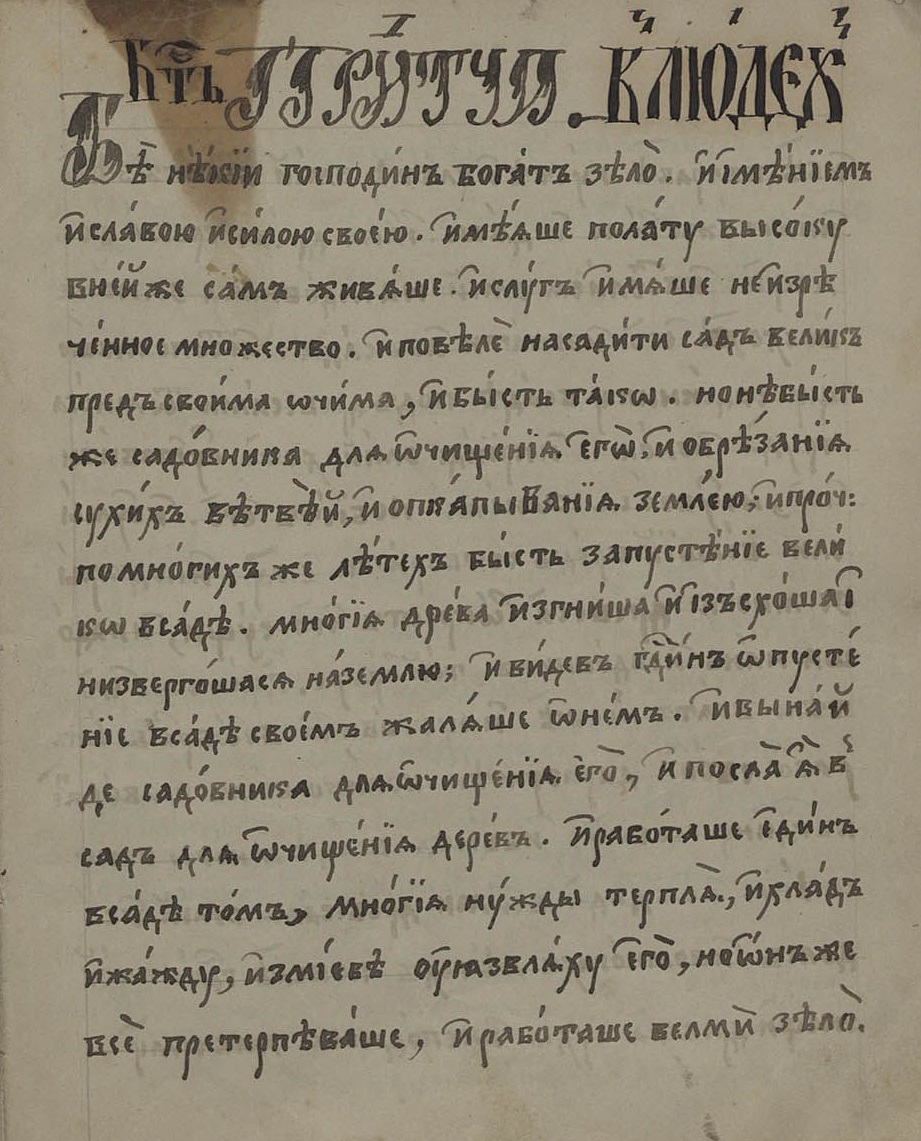 І
Кт҃ъ ПРИ́ТЧИ. В̾ЛЮ́ДЕХ̾
Бѣ̀ нѣ́кїи господи́нъ бога́тъ зѣло̀. и҆имѣ́нїемъ
и҆сла́вою и҆си́лою свое́ю. и҆мѣ́ѧше пола́ту высо́ку
вне́йже са́мъ живѧ́ше. и҆слу́гъ и҆мѧ́ше неизрѣ
че́нное множество. и҆повѣлѐ насади́ти са́дъ вели́къ
предъ свои́ма ѡчи́ма, и҆бы́сть та́кѡ. но нѣбы́сть
же садо́вника для ѡ҆чище́нїѧ є҆гѡ̀; и҆ обрѣ́занїѧ
сухи́хъ вѣтвѣ́й, и҆ опка́пыванїѧ земле́ю; и҆про́ч:
по мно́гихъ же лѣ́техъ бы́сть запустѣ́нїе вели́
кѡ вса́дѣ. мно́гїѧ древа и҆згни́ша и҆ і҆зъсхо́ша і҆
низверго́шасѧ на́землю; и҆ ви́девъ гдⷭ҇и́нъ ѡ҆пусте́
нїе вса́дѣ свое́мъ жалѧ́ше ѡ҆не́мъ. и҆вына́й
де садо́вника длѧ ѡ҆чище́нїѧ є҆го̀, и҆ посла̀ ѧ҆̀ в̾
садъ длѧ ѡ҆чище́нїѧ дере́въ. и҆рабо́таше є҆ди́нъ
вса́дѣ то́мъ, мно́гїѧ ну́жды терплѧ̀, и҆хла́дъ
и҆жа́жду, и҆змі́евѣ оу҆ꙗзвлѧ́ху є҆го̀, но ѡ҆́нъ же
всѐ претерпѣва́ше, и҆рабо́таше велмѝ зѣло̀.